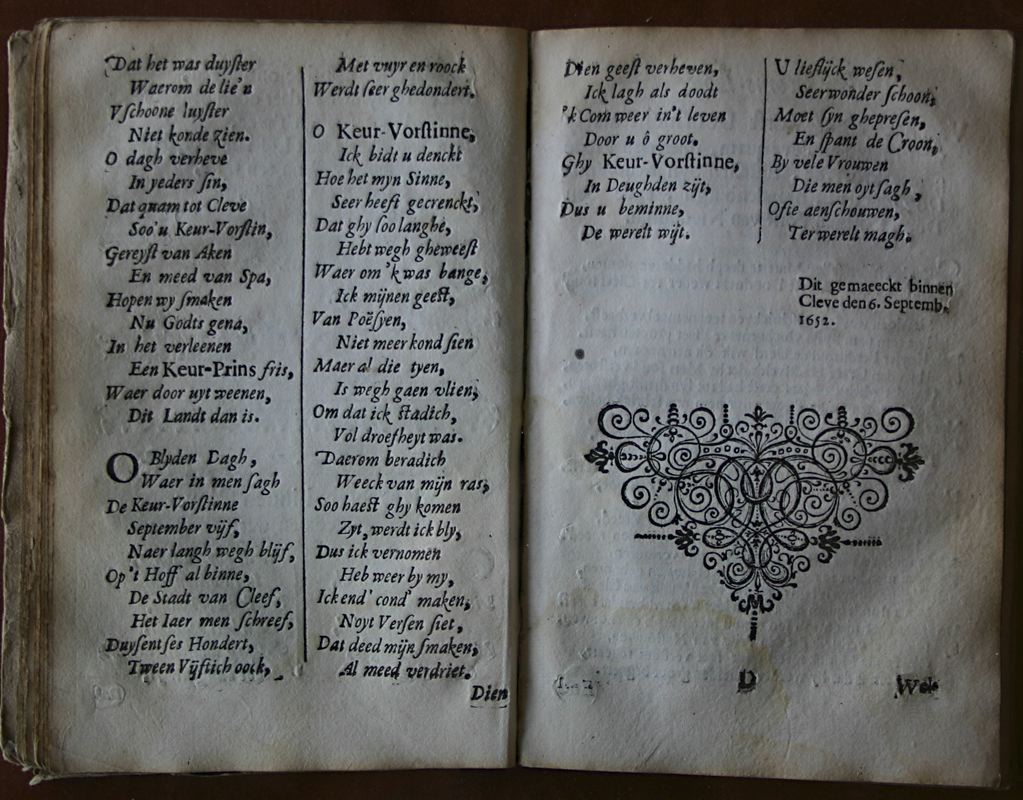 Dat het was duyſter
Waerom de lie'n
V ſchoone luyſter
Niet konde zien.
O dagh verheve
In yeders ſin,
Dat quam tot Cleve
Soo'u Keur-Vorſtin,
Gereyſt van Aken
En meed van Spa,
Hopen wy ſmaken
Nu Godts gena,
In het verleenen
Een Keur-Prins fris,
Waer door uyt weenen,
Dit Landt dan is.
O Blyden Dagh,
Waer in men ſagh
De Keur-Vorſtinne
September vijf,
Naer langh wegh blijf,
Op't Hoff al binne,
De Stadt van Cleef,
Het Iaer men ſchreef,
Duyſent ſes Hondert,
Tween Vijftich oock,
Met vuyr en roock
Werdt ſeer ghedondert.
O Keur-Vorſtinne,
Ick bidt u denckt
Hoe het myn Sinne,
Seer heeft gecrenckt,
Dat ghy ſoo langhe,
Hebt wegh gheweeſt
Waer om 'k was bange,
Ick mijnen geeſt,
Van Poëſyen,
Niet meer kond ſien
Maer al die tyen,
Is wegh gaen vlien,
Om dat ick ſtadich,
Vol droefheyt was.
Daerom beradich
Weeck van mijn ras,
Soo haeſt ghy komen
Zyt, werdt ick bly,
Dus ick vernomen
Heb weer by my,
Ick end' cond' maken,
Noyt Verſen ſiet,
Dat deed mijn ſmaken,
Al meed verdriet.
Dien
Dien geeſt verheven,
Ick lagh als doodt
'k Com weer in't leven
Door u ô groot.
Ghy Keur-Vorſtinne,
In Deughden zijt,
Dus u beminne,
De werelt wijt.
U lieflijck weſen,
Seer wonder ſchoon,
Moet ſyn ghepreſen,
En ſpant de Croon,
By vele Vrouwen
Die men oyt ſagh,
Ofte aenſchouwen,
Ter werelt magh.
Dit gemaeeckt binnen
Cleve den 6. Septemb.
1652.
D